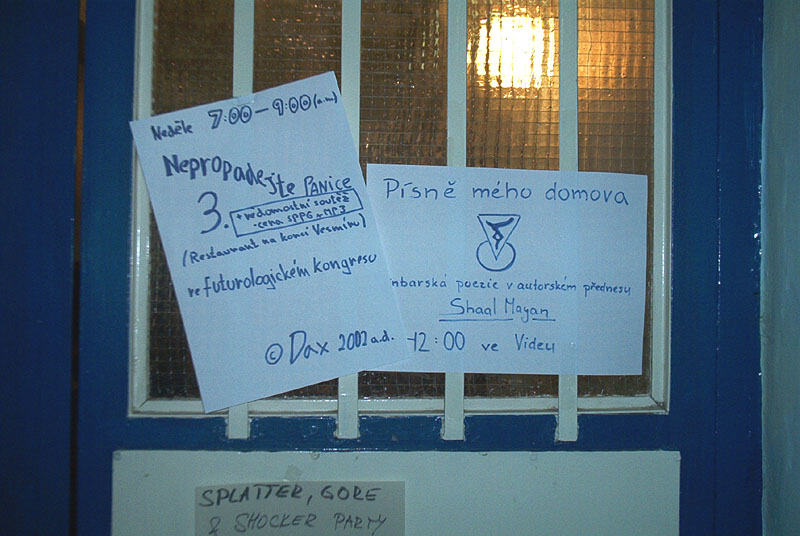 Neděle 7:00 – 9:00 (a.m)
Nepropadejte PANICE
3.
+ vědomostní soutěž
- cena SPPG a MP3
(Restaurant na konci Vesmíru)
ve futurologickém kongresu
© Dax 2002 a.d.
Písně mého domova
mbarská poezie v autorském přednesu
Shaal Mayan
12:00 ve Videu
SPLATTER, GORE
& SHOCKER PARTY